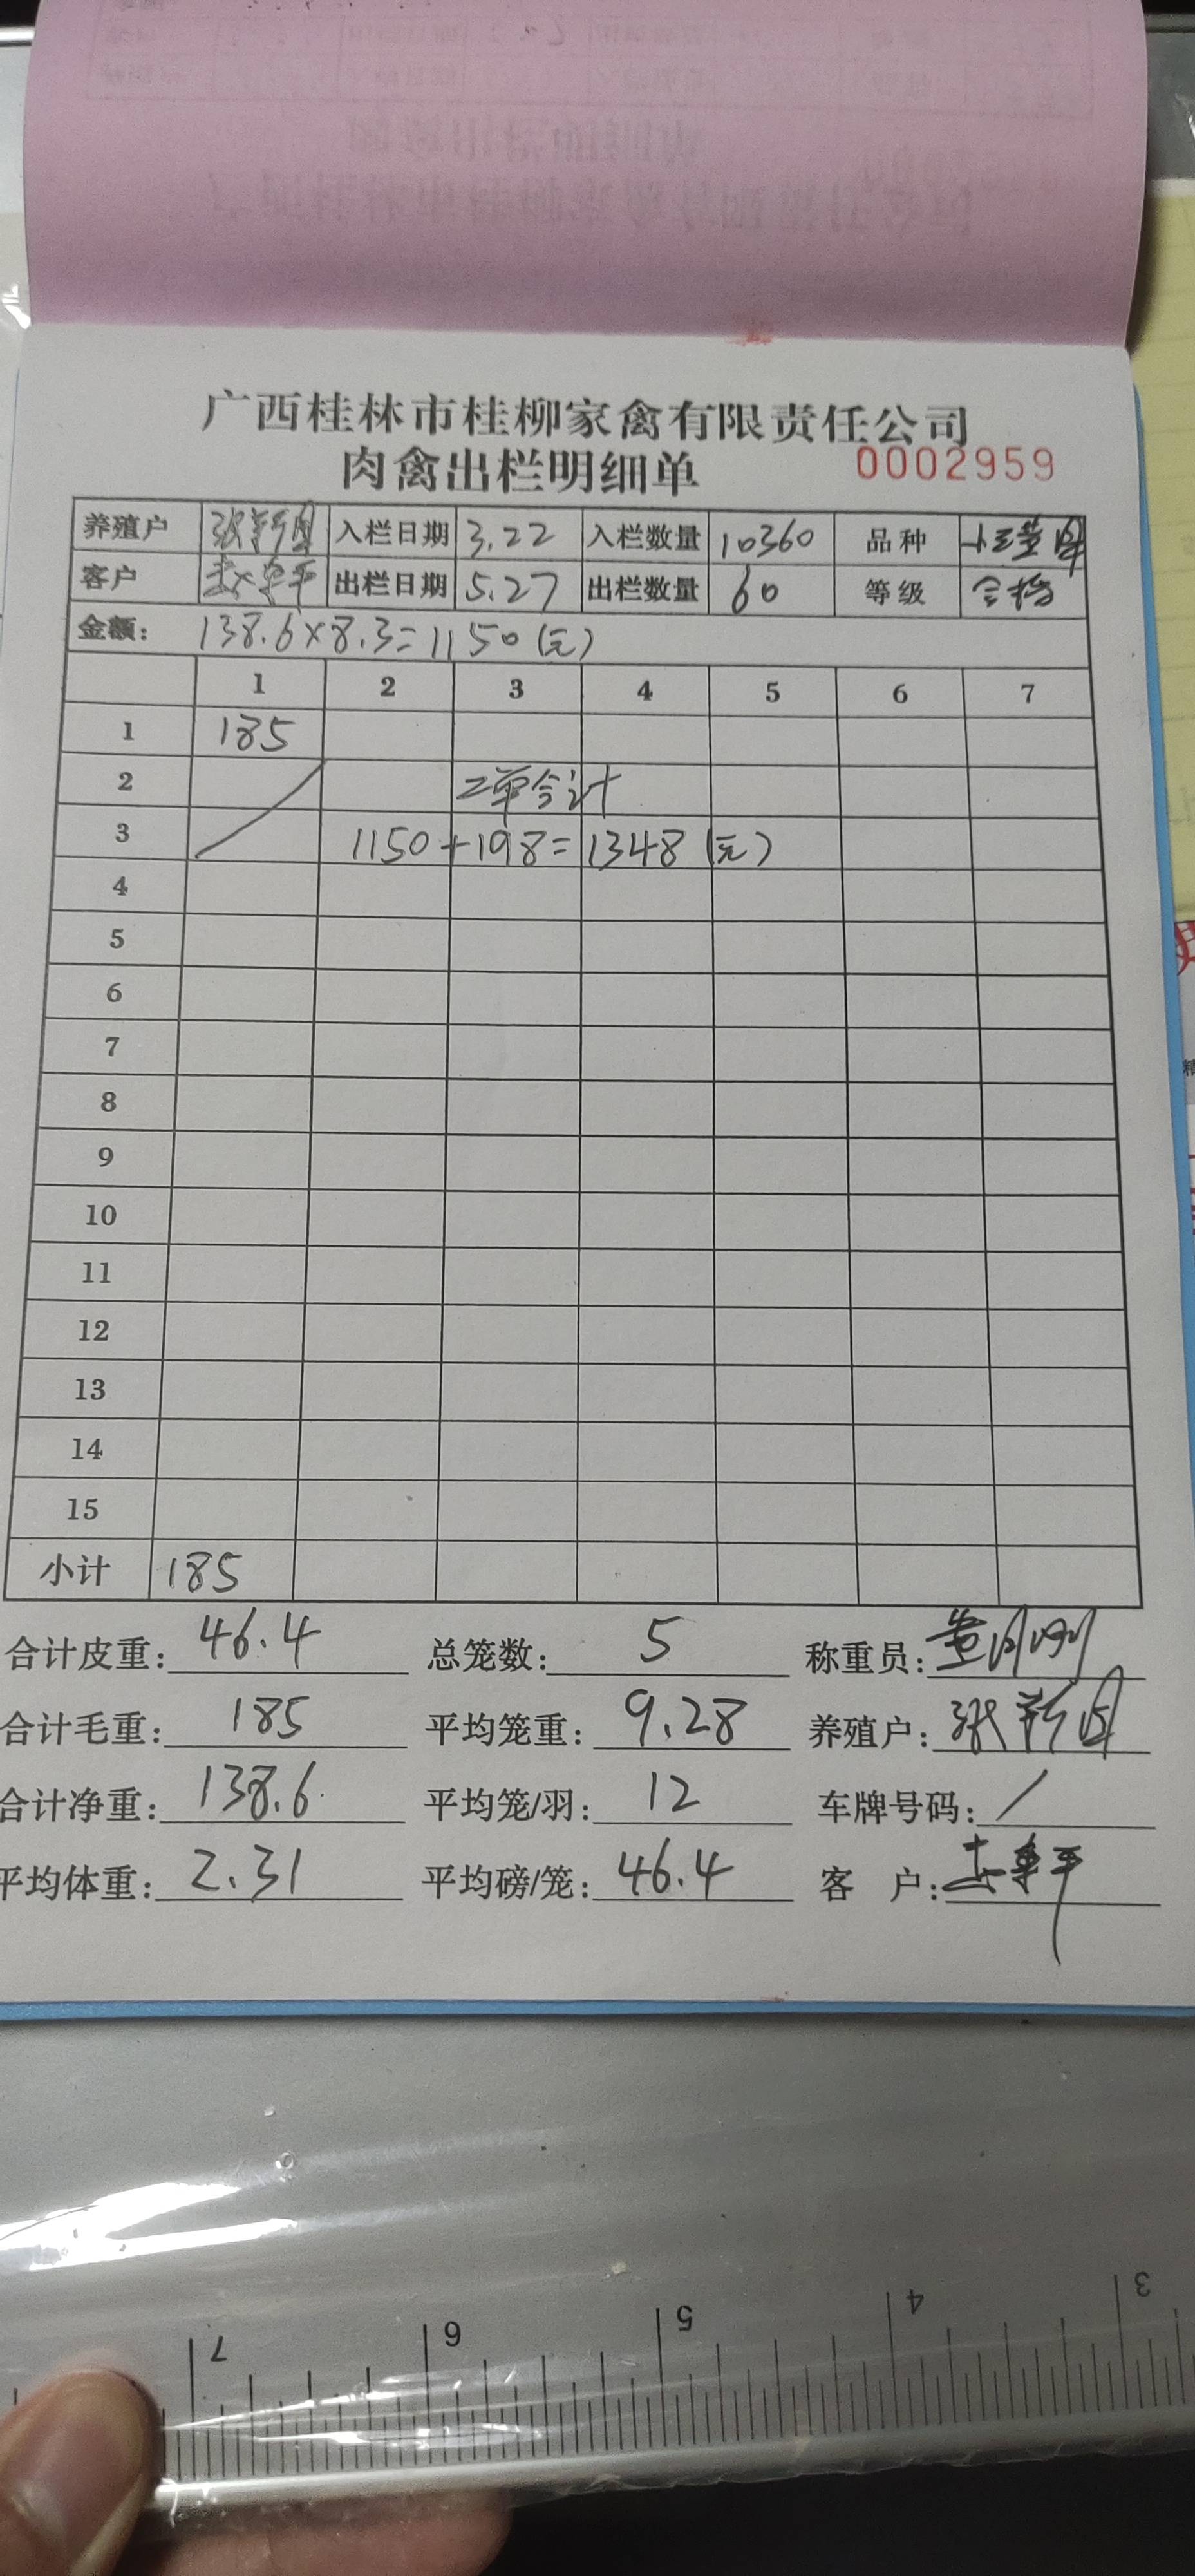 广西桂林市桂柳家禽有限责任公司
肉禽出栏明细单 0002959
养殖户 张新国 入栏日期 3.22 入栏数量 10360 品种
客户 出栏日期 5.27 出栏数量 60 等级 合格
金额: 138.6×8.3=1150(元)
1 2 3 4 5 6 7
1 185
2 二单合计
3 1150+198=1348(元)
4
5
6
7
8
9
10
11
12
13
14
15
小计 185
合计皮重: 46.4 总笼数: 5 称重员:
合计毛重: 185 平均笼重: 9.28 养殖户: 张新国
合计净重: 138.6 平均笼/羽: 12 车牌号码: /
平均体重: 2.31 平均磅/笼: 46.4 客 户:
7 6 5 4 3